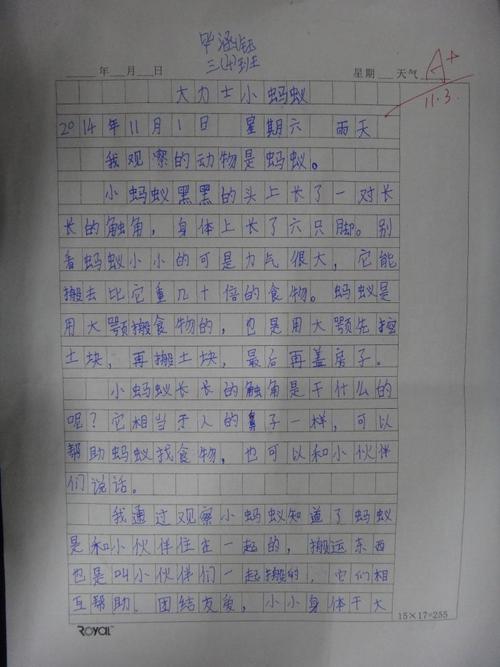 毕涵钰
三(4)班
年 月 日 星期 天气 A+
11.3.
大力士小蚂蚁
2014年11月1日 星期六 雨天
我观察的动物是蚂蚁。
小蚂蚁黑黑的头上长了一对长
长的触角，身体上长了六只脚。别
看蚂蚁小小的可是力气很大，它能
搬去比它重几十倍的食物。蚂蚁是
用大颚搬食物的，也是用大颚先挖
土块，再搬土块，最后再盖房子。
小蚂蚁长长的触角是干什么的
呢？它相当于人的鼻子一样，可以
帮助蚂蚁找食物，也可以和小伙伴
们说话。
我通过观察小蚂蚁知道了蚂蚁
是和小伙伴住在一起的，搬运东西
也是叫小伙伴们一起搬的，它们相
互帮助。团结友爱，小小身体干大
15×17=255
ROYAL